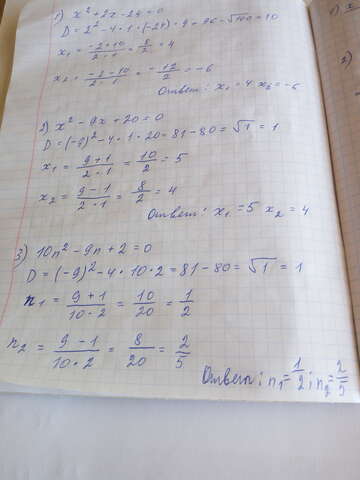 1) x² + 2x - 24 = 0
D = 2² - 4 · 1 · (-24) = 4 + 96 = √100 = 10
x₁ = (-2+10)/(2·1) = 8/2 = 4
x₂ = (-2-10)/(2·1) = -12/2 = -6
Ответ: x₁ = 4 x₂ = -6
2) x² - 9x + 20 = 0
D = (-9)² - 4 · 1 · 20 = 81 - 80 = √1 = 1
x₁ = (9+1)/(2·1) = 10/2 = 5
x₂ = (9-1)/(2·1) = 8/2 = 4
Ответ: x₁ = 5 x₂ = 4
3) 10n² - 9n + 2 = 0
D = (-9)² - 4 · 10 · 2 = 81 - 80 = √1 = 1
n₁ = (9+1)/(10·2) = 10/20 = 1/2
n₂ = (9-1)/(10·2) = 8/20 = 2/5
Ответ: n₁ = 1/2; n₂ = 2/5
1)
2)